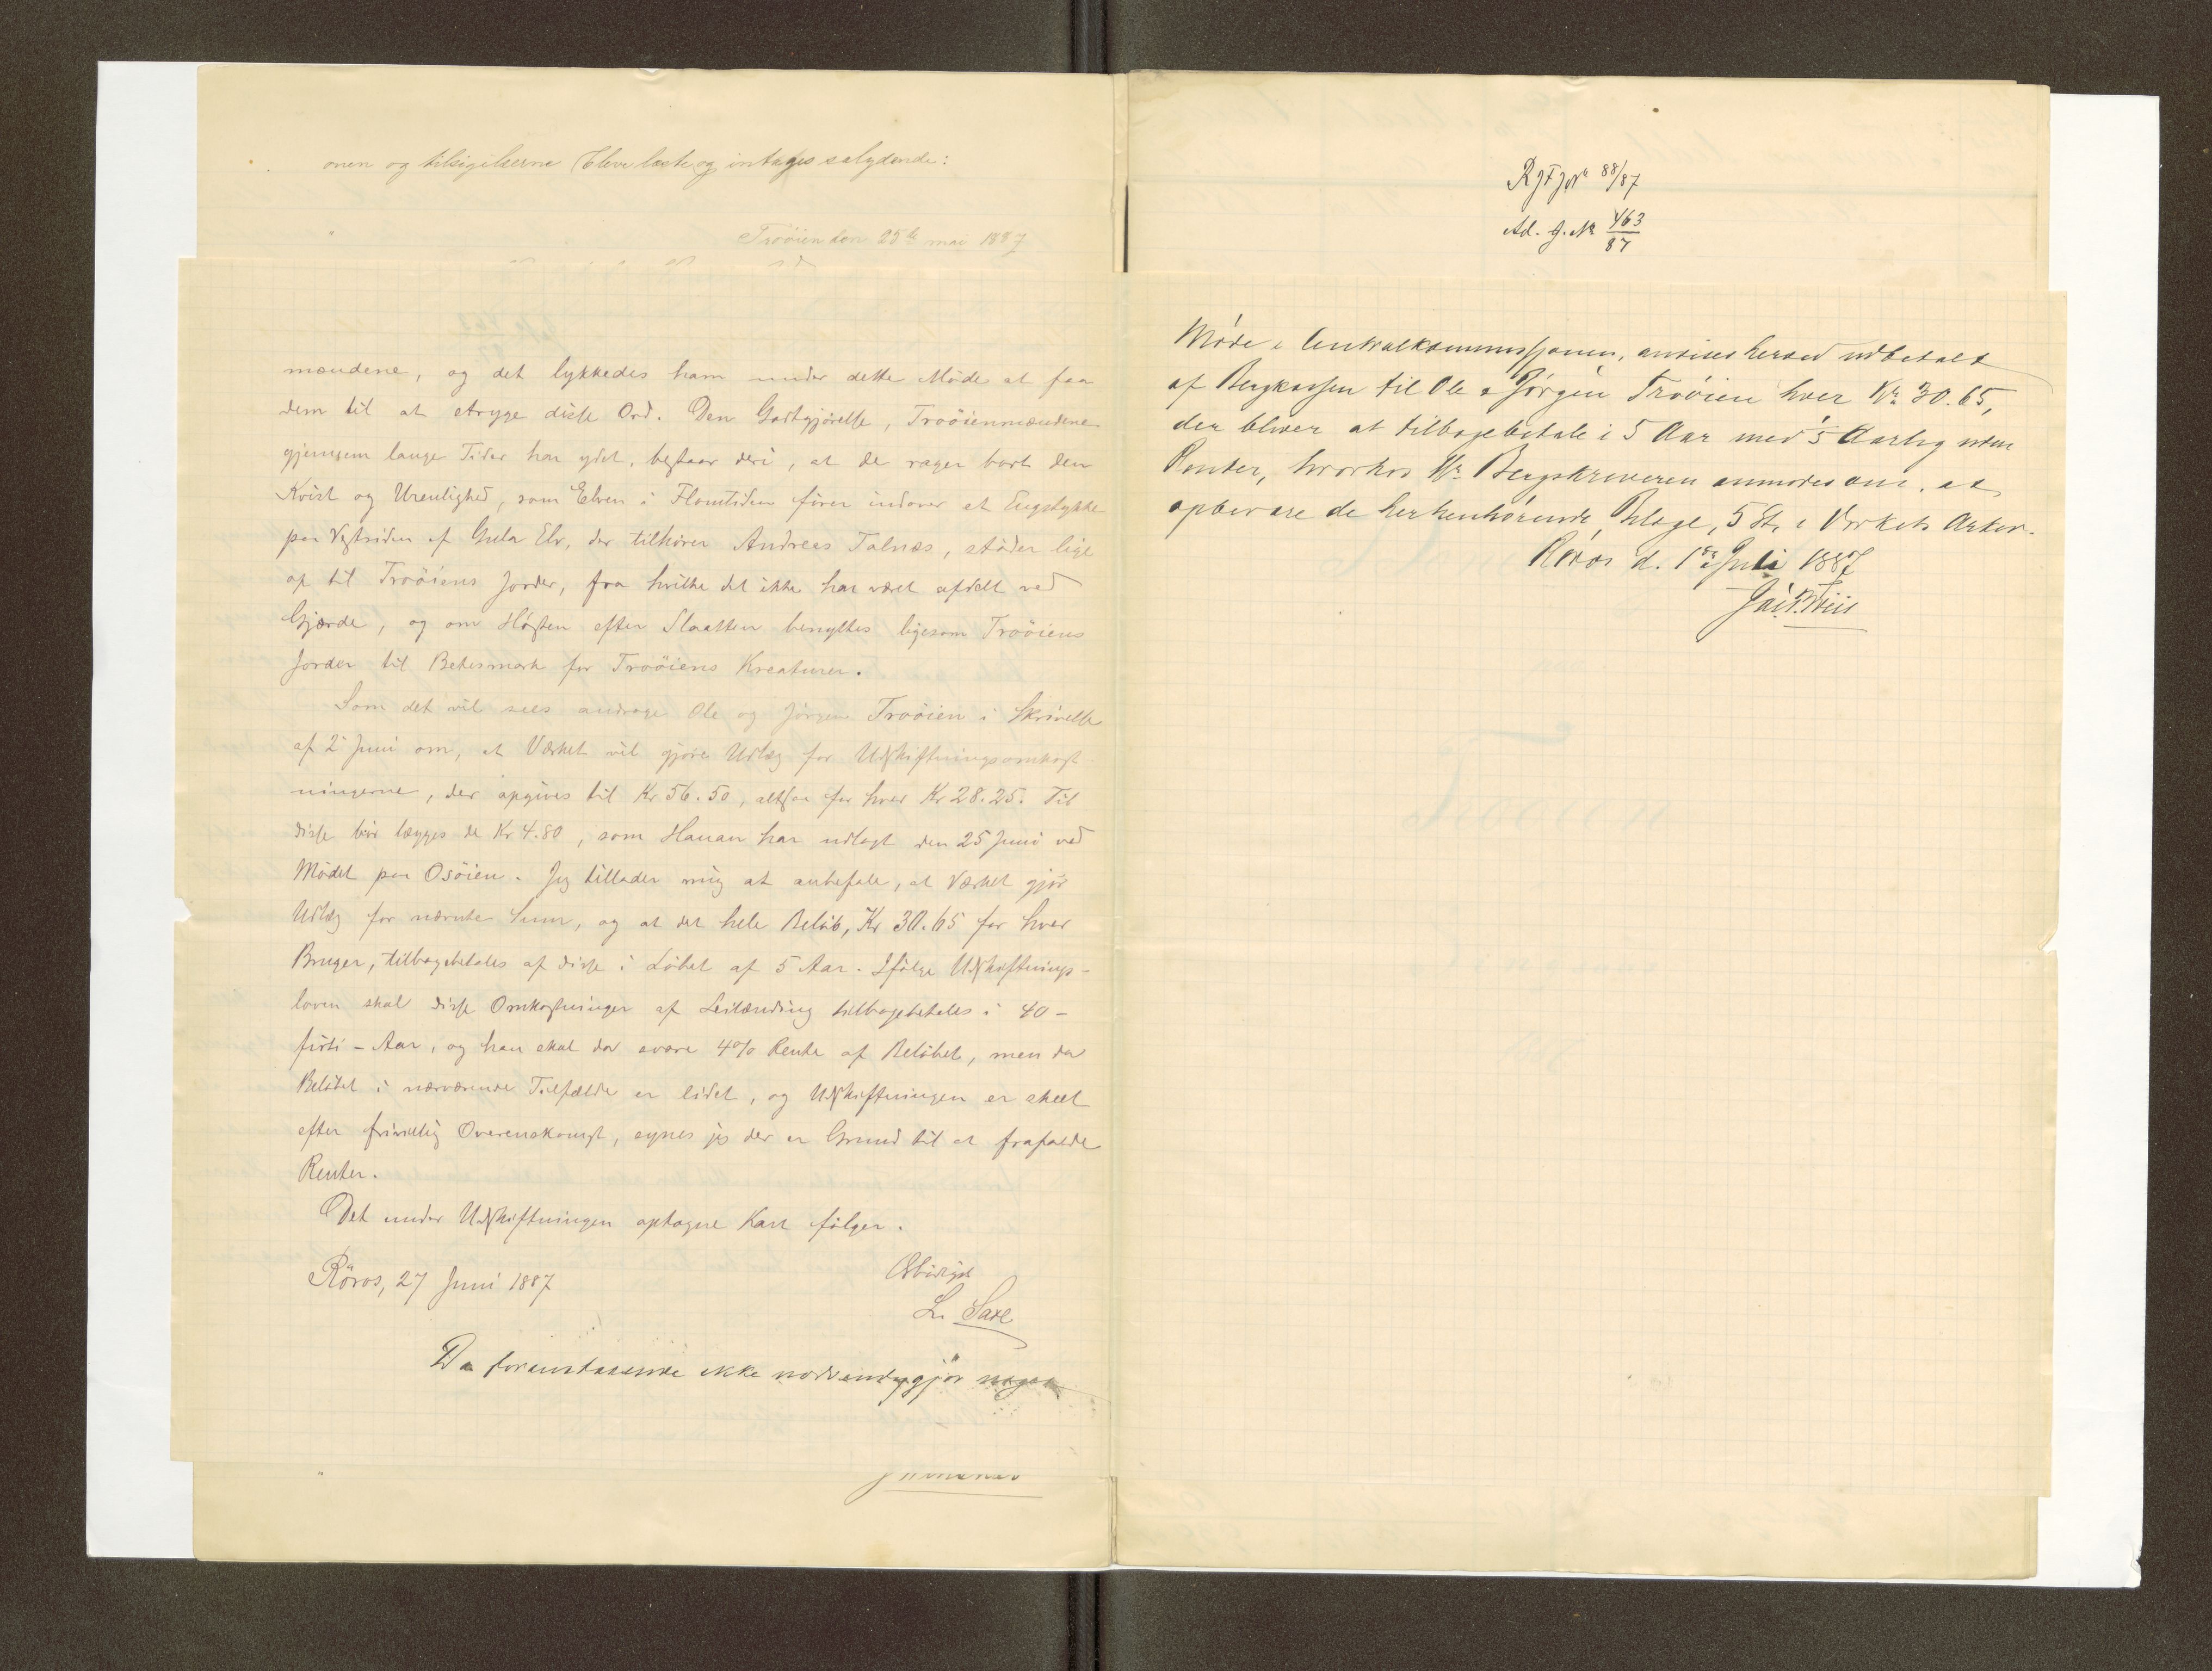 onen og tilsigelserne bleve læste og intages salydende:
Troöien den 25de mai 1887
mændene, og det lykkedes ham under dette Möde at faa
dem til at stryge disse Ord. Den Godtgjörelse, Troöienmændene
gjennem lange Tider har ydet, bestaar deri, at de rager bort den
Kvist og Urenlighed, som Elven i Flomtiden förer indover et Engstykke
paa Vestsiden af Gula Elv, der tilhörer Andreas Talnæs, stöder lige
op til Troöiens Jorder, fra hvilke det ikke har været afdelt ved
Gjærde, og om Hösten efter Slaatten benyttes ligesom Troöiens
Jorder til Betesmark for Troöiens Kreaturer.
Som det vil sees androge Ole og Jörgen Troöien i Skrivelse
af 2 Juni om, at Værket vil gjöre Udlæg for Udskiftningsomkost
ningerne, der opgives til Kr 56.50, altsaa for hver Kr 28.25. Til
disse bör lægges de Kr 4.80, som Hanan har udlagt den 25 Juni ved
Mödet paa Osöien. Jeg tillader mig at anbefale, at Værket gjör
Udlæg for nævnte Sum, og at det hele Belöb, Kr 30.65 for hver
Bruger, tilbagebetales af disse i Löbet af 5 Aar. Ifölge Udskiftnings-
loven skal disse Omkostninger af Leilænding tilbagebetales i 40 -
firti - Aar, og han skal da svare 4% Rente af Belöbet, men da
Belöbet i nærværende Tilfælde er lidet, og Udskiftningen er skeet
efter frivillig Overenskomst, synes jeg der er Grund til at frafalde
Renter.
Det under Udskiftningen optagne Kart fölger.
Röros, 27 Juni 1887
Ærbödigst
L. Saxe
Da foranstaaende ikke nödvendiggjör noget
88/87
Ad. g. No 463/87
Möde i Centralkommissjonen, anvises herved udbetalt
af Bergkassen til Ole & Jörgen Troöien hver Kr. 30.65,
der bliver at tilbagebetale i 5 Aar med 1/5 Aarlig uden
Renter, hvorhos Hr. Bergskriveren anmodes om, at
opbevare de herhenhörende Bilage, 5 St, i Værkets Arkiv.
Röros d. 1ste Juli 1887